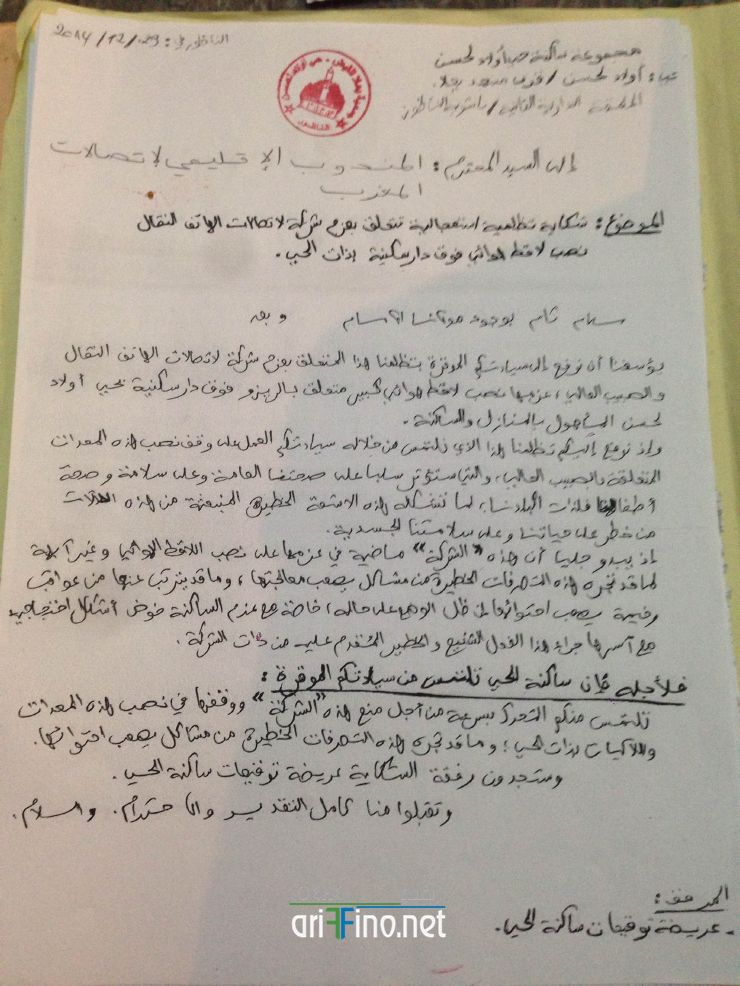 الناظور في: 29/12/2014
مجموعة ساكنة حي أولاد لحسن
حي: أولاد لحسن / فرب مسجد بعلا
الملحقة الإدارية الثانية / باشوية الناظور
إلى السيد المحترم: المندوب الإقليمي لإتصالات
المغرب
الموضوع: شكاية تظلمية استعجالية تتعلق بعزم شركة لاتصالات الهاتف النقال
نصب لاقط هوائي فوق دار سكنية بذات الحي.
سلام تام بوجود مولانا الإمام وبعد
يؤسفنا أن نرفع إلى سيادتكم الموقرة بتظلمنا هذا المتعلق بعزم شركة لاتصالات الهاتف النقال
والصبيب العالي، عزمها نصب لاقط هوائي كبير متعلق بالريزو فوق دار سكنية بحي أولاد
لحسن المأهول بالمنازل والساكنة.
وإذ نرفع إليكم تظلمنا هذا الذي نلتمس من خلاله سيادتكم العمل على وقف نصب هذه المعدات
المتعلقة بالصبيب العالي، والتي ستؤثر سلبا على صحتنا العامة وعلى سلامة وصحة
أطفالنا فلذات أكبادنا، لما تشكله هذه الأشعة الخطيرة المنبعثة من هذه الآلات
من خطر على حياتنا وعلى سلامتنا الجسدية.
إذ يبدو جليا أن هذه "الشركة" ماضية في عزمها على نصب اللاقط الهوائي وغير آبهة
لما قد تجره هذه التصرفات الخطيرة من مشاكل يصعب معالجتها، وما قد يترتب عنها من عواقب
وخيمة يصعب احتواؤها في ظل الوضع على حاله، خاصة مع عزم الساكنة خوض أشكال احتجاجية
مع أسرها جراء هذا الفعل الشنيع والخطير المقدم عليه من ذات الشركة.
فلأجله فإن ساكنة الحي تلتمس من سيادتكم الموقرة:
نلتمس منكم التحرك بسرعة من أجل منع هذه "الشركة" ووقفها في نصب هذه المعدات
والآليات بذات الحي؛ وما قد تجره هذه التصرفات الخطيرة من مشاكل يصعب احتوائها.
وستجدون رفقة الشكاية عريضة توقيعات ساكنة الحي.
وتقبلوا منا كامل التقدير والاحترام. والسلام.
المرفق:
- عريضة توقيعات ساكنة الحي.
ariFFino.net